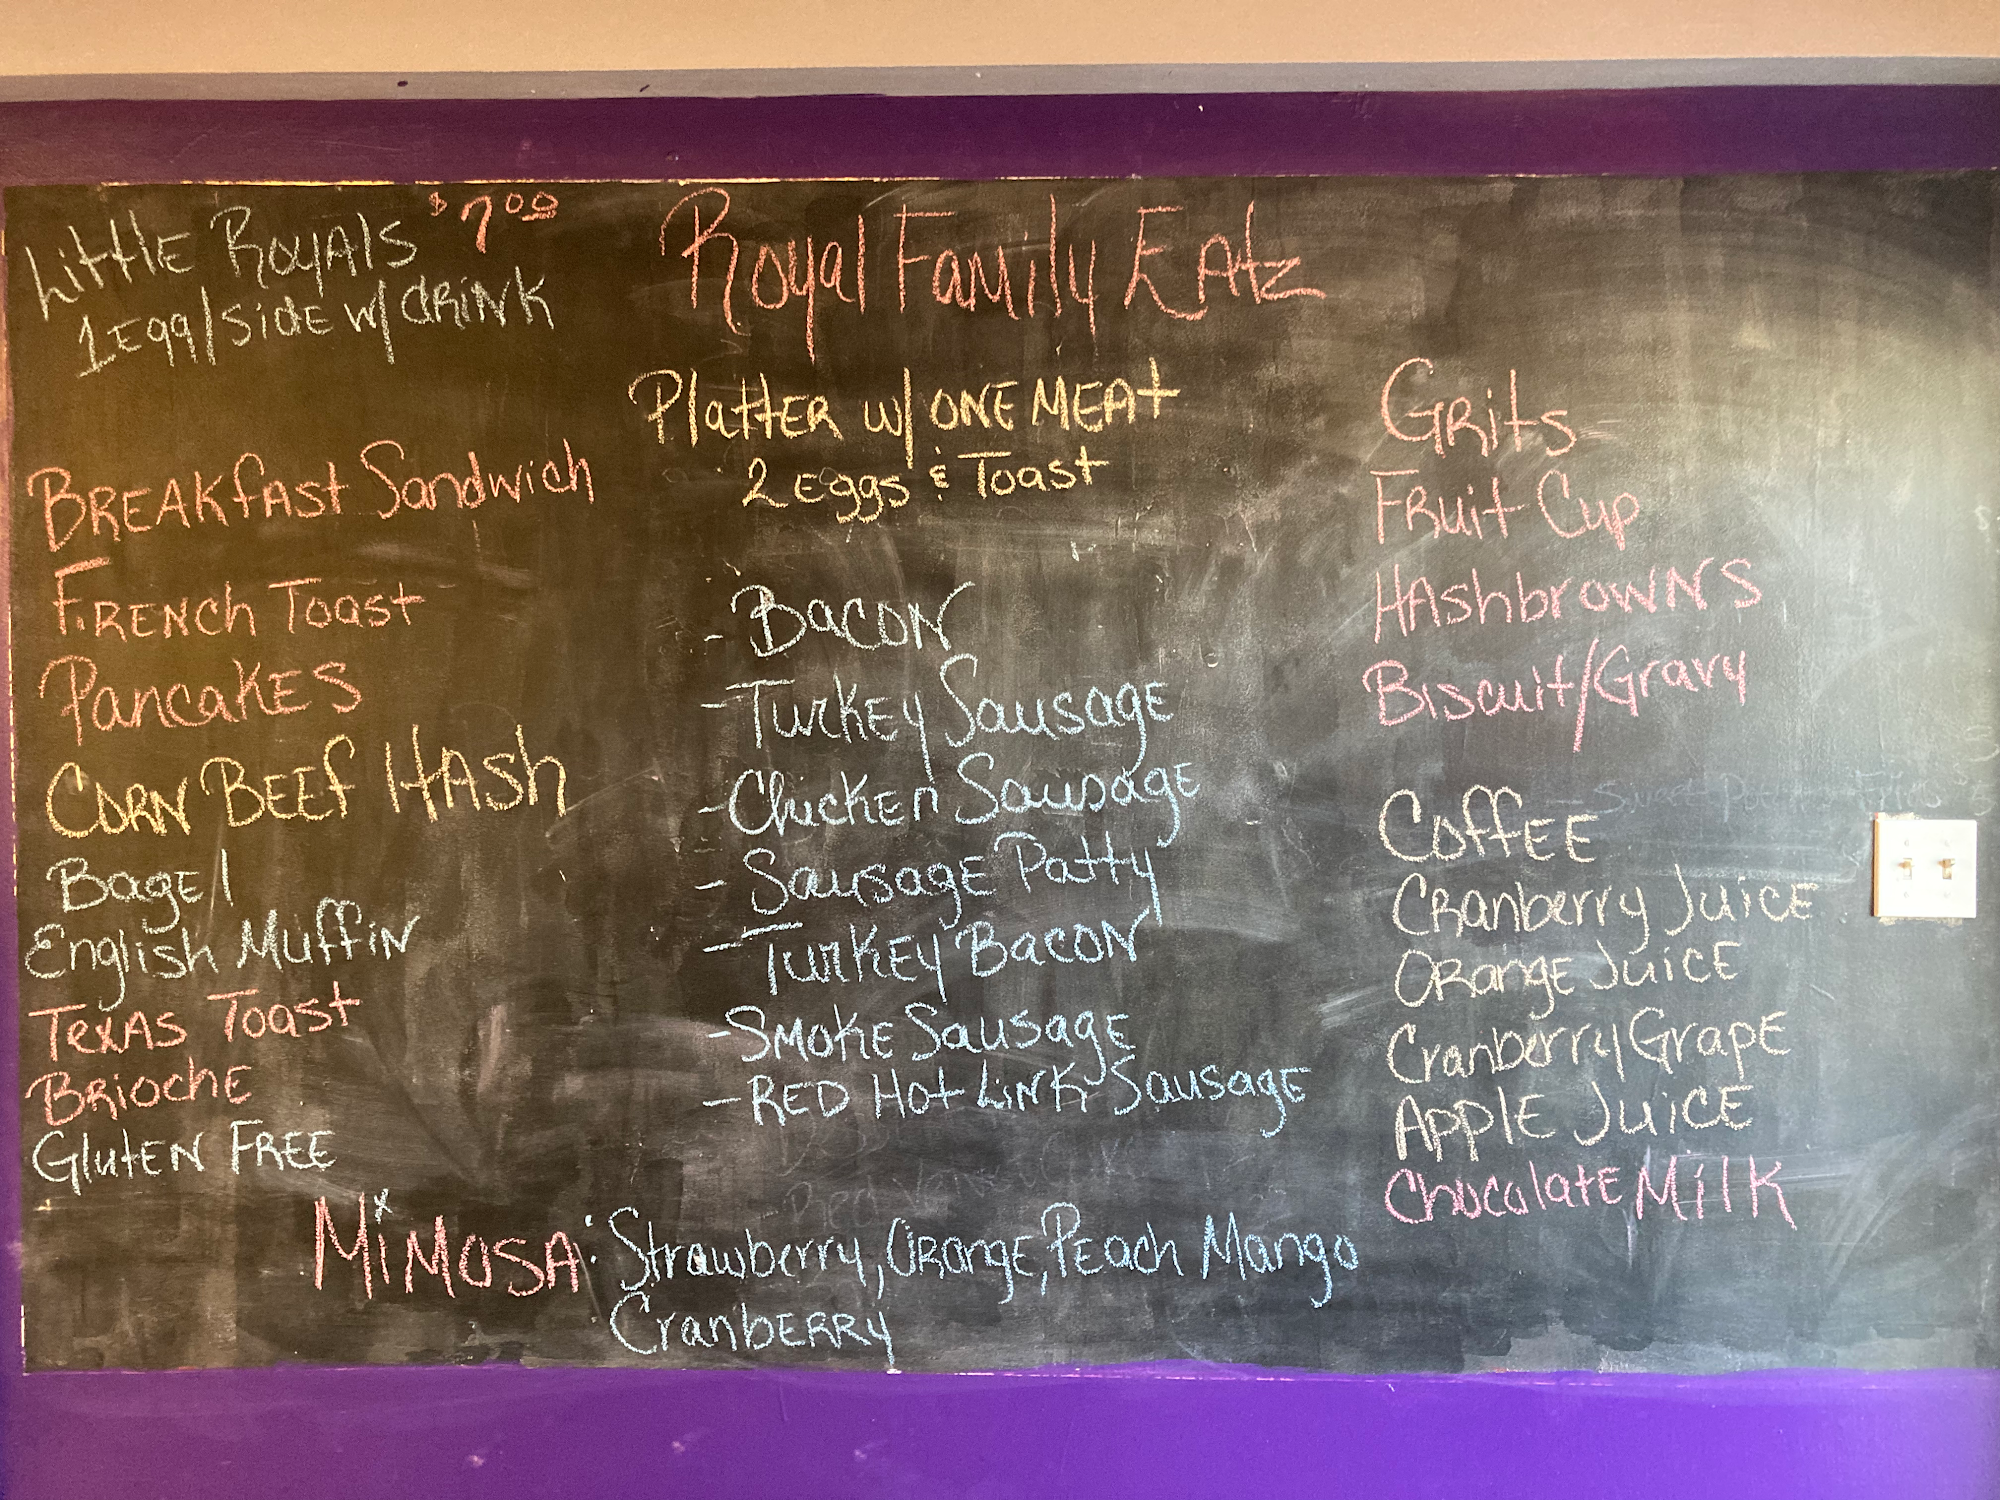 Little Royals $7.00
1 Egg/Side w/ drink
Royal Family Eatz
Breakfast Sandwich
French Toast
Pancakes
Corn Beef Hash
Bagel
English Muffin
Texas Toast
Brioche
Gluten Free
Platter w/ One Meat
2 Eggs & Toast
- Bacon
- Turkey Sausage
- Chicken Sausage
- Sausage Patty
- Turkey Bacon
- Smoke Sausage
- Red Hot Link Sausage
Grits
Fruit Cup
Hashbrowns
Biscuit/Gravy
Coffee
Cranberry Juice
Orange Juice
Cranberry Grape
Apple Juice
Chocolate Milk
Mimosa: Strawberry, Orange, Peach Mango
Cranberry